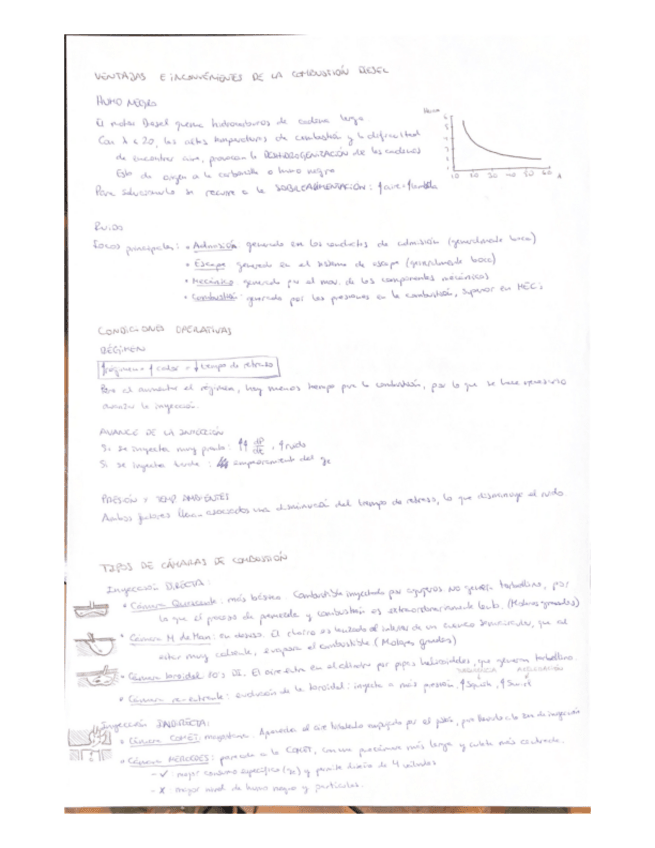 VENTAJAS E INCONVENIENTES DE LA COMBUSTIÓN DIESEL
HUMO NEGRO
El motor Diesel quema hidrocarburos de cadena larga
Con λ < 20, las altas temperaturas de combustión y la dificultad
de encontrar aire, provocan la DESHIDROGENIZACIÓN de las cadenas
Esto da origen a la carbonilla o humo negro
Para solucionarlo se recurre a la SOBREALIMENTACIÓN: ↑aire
Humo
10 20 30 40 50 60 λ
RUIDO
Focos principales: • Admisión generado en los conductos de admisión (generalmente bajo)
• Escape generado en el sistema de escape (generalmente bajo)
• Mecánico generado por el mov. de los componentes mecánicos
• Combustión: generado por las presiones en la combustión, superior en MEC
CONDICIONES OPERATIVAS
RÉGIMEN
↑régimen = ↑calor = ↓tiempo de retraso
Pero al aumentar el régimen, hay menos tiempo para la combustión, por lo que se hace necesario
avanzar la inyección.
AVANCE DE LA INYECCIÓN
Si se inyecta muy pronto: ↑↑ dP/dt, ↑ruido
Si se inyecta tarde: empeoramiento del ge
PRESIÓN Y TEMP AMBIENTES
Ambos factores llevan asociados una disminución del tiempo de retraso, lo que disminuye el ruido
TIPOS DE CÁMARAS DE COMBUSTIÓN
Inyección DIRECTA:
• Cámara Quiescente: más básica. Combustible inyectado por agujeros. NO genera torbellino, por
lo que el proceso de mezcla y combustión es extraordinariamente lento. (Motores grandes)
• Cámara M de Man: en desuso. El chorro es lanzado al interior de un cuenco semicircular, que al
estar muy caliente, evapora el combustible (Motores grandes)
• Cámara toroidal El aire entra en el cilindro por pipas helicoidales, que generan torbellino.
• Cámara re-entrante: evolución de la toroidal: inyecta a más presión, ↑Squish, ↑Swirl
Inyección INDIRECTA:
• Cámara COMET: Aprovecha el aire empujado por el pistón, para llevarlo a la zona de inyección
• Cámara MERCEDES: parecida a la COMET, con una precámara más larga y cuello más estrecho.
- ✓: mejor consumo específico (ge) y permite diseño de 4 válvulas
- X: mayor nivel de humo negro y partículas.